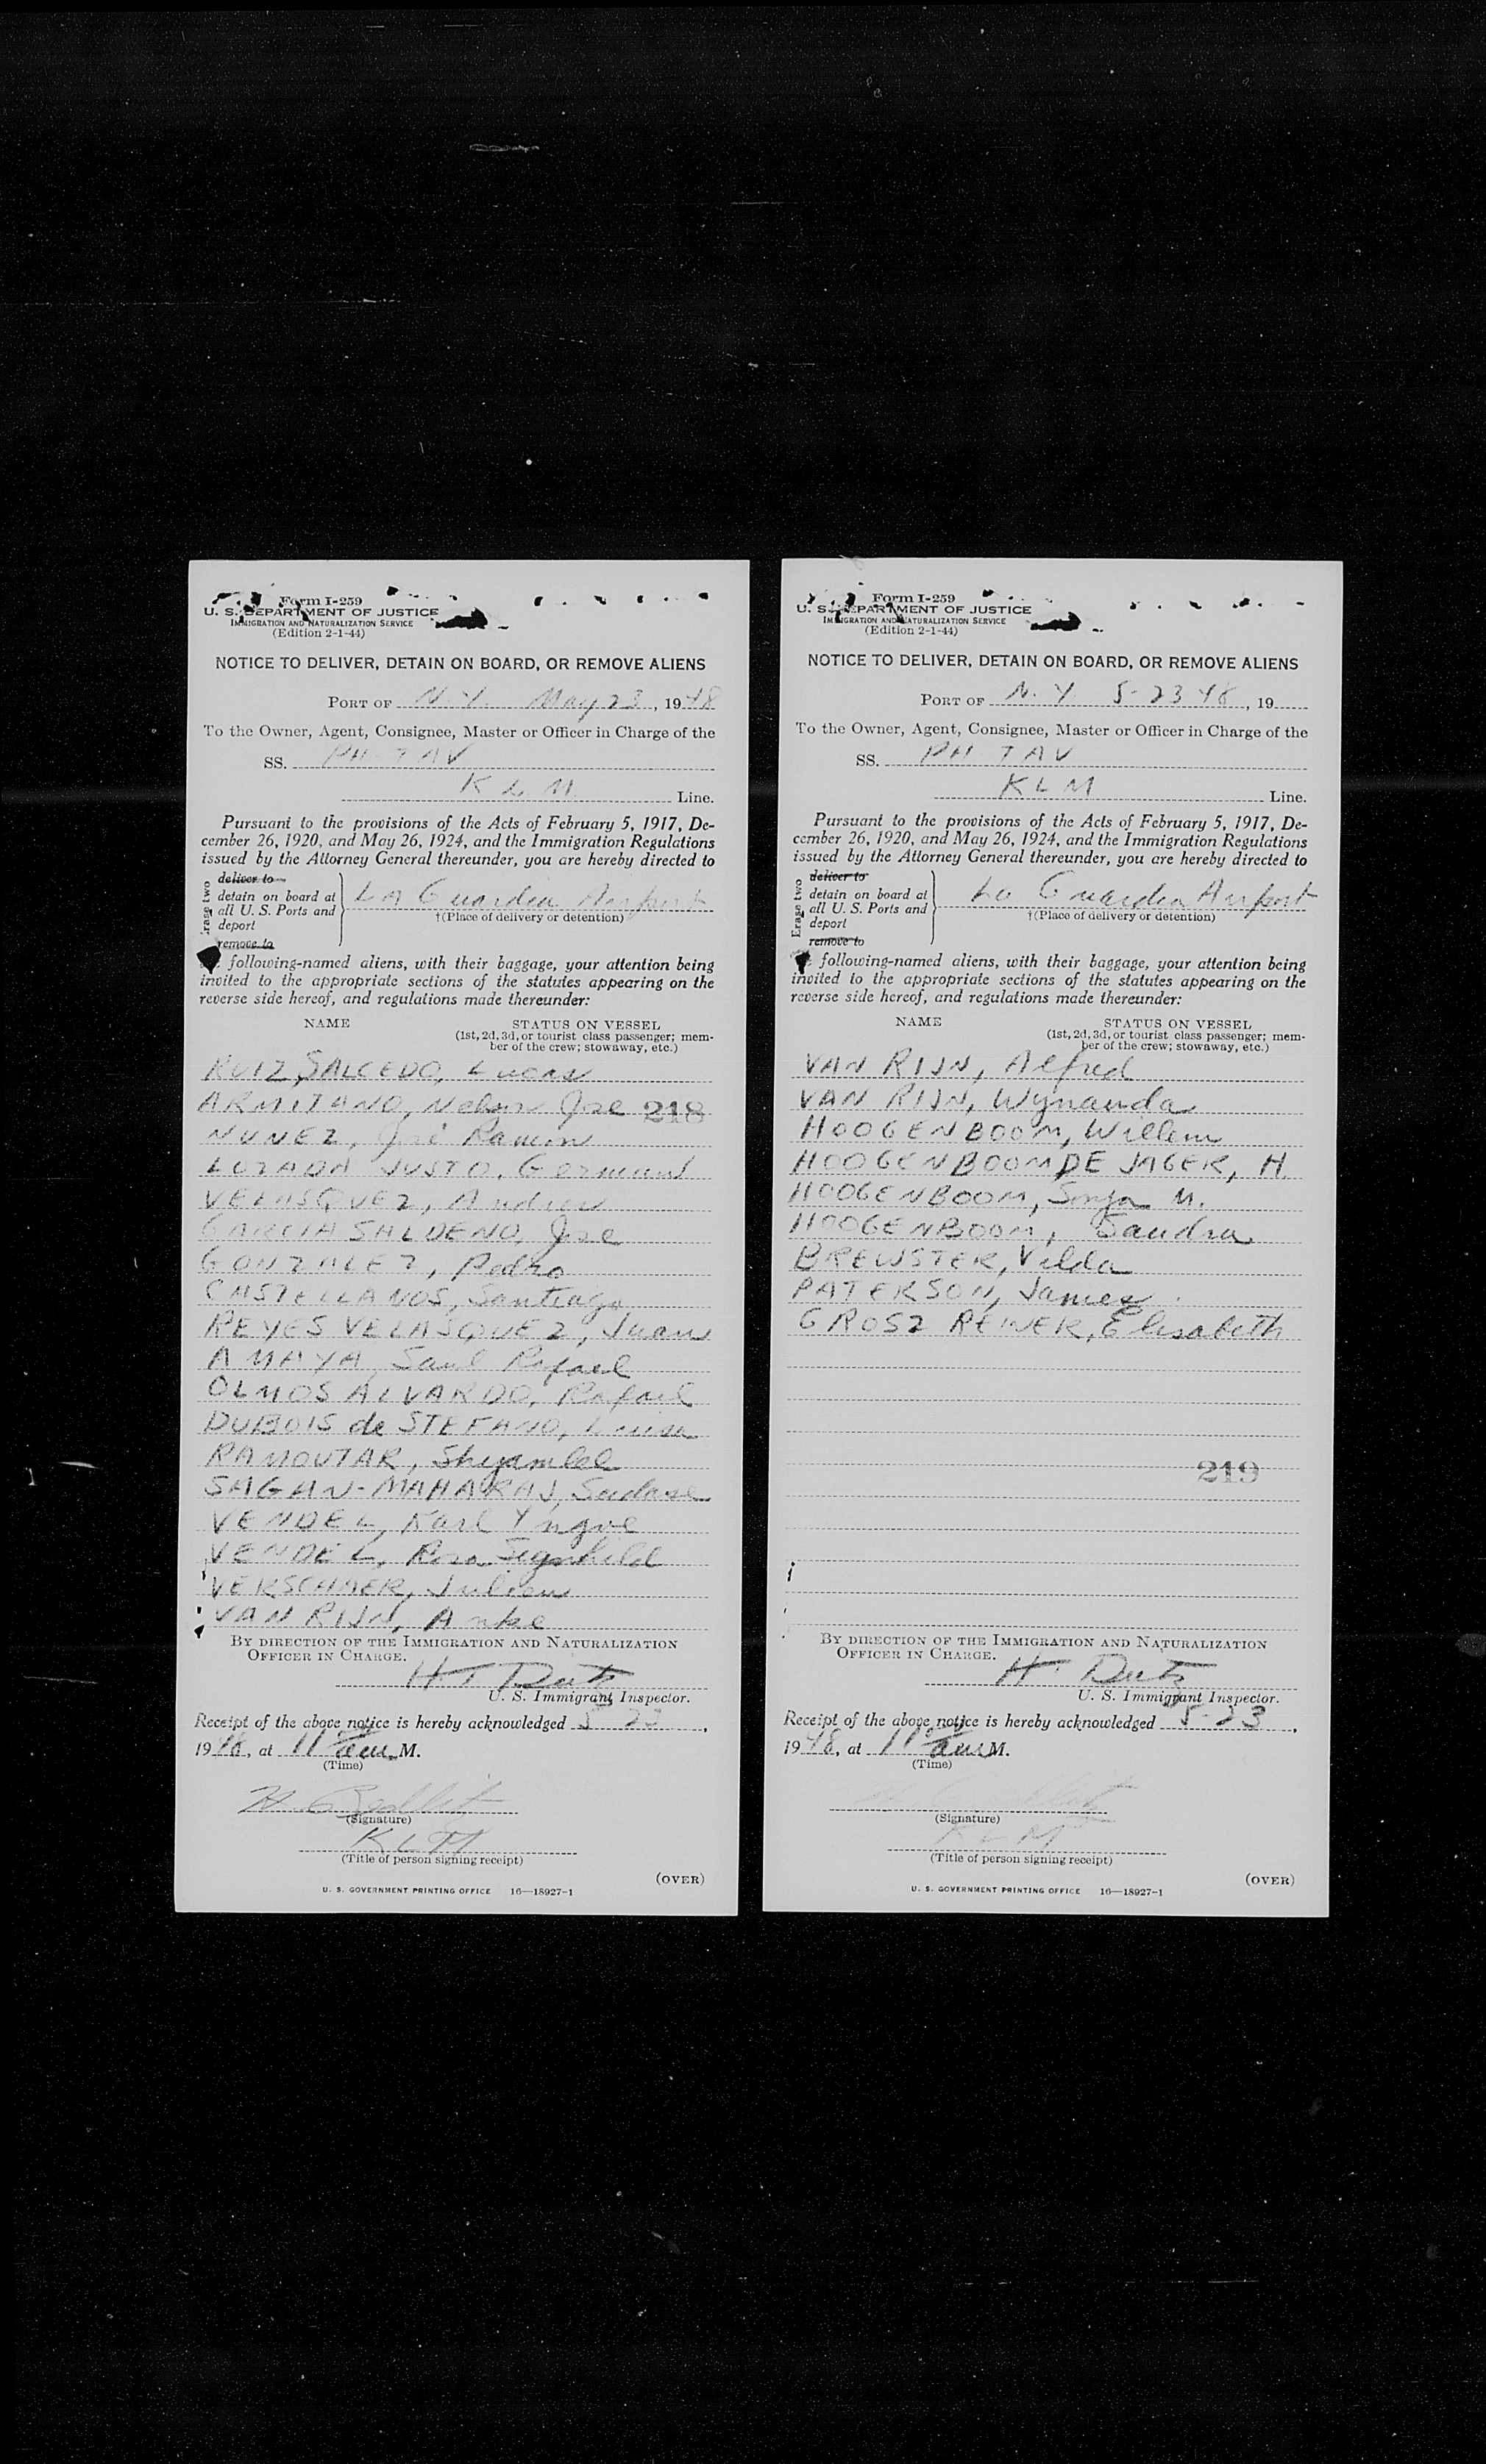 Form I-259
U. S. DEPARTMENT OF JUSTICE
IMMIGRATION AND NATURALIZATION SERVICE
(Edition 2-1-44)
NOTICE TO DELIVER, DETAIN ON BOARD, OR REMOVE ALIENS
PORT OF N. Y. May 23, 1948
To the Owner, Agent, Consignee, Master or Officer in Charge of the
SS. PH TAV
K L M Line.
Pursuant to the provisions of the Acts of February 5, 1917, De-
cember 26, 1920, and May 26, 1924, and the Immigration Regulations
issued by the Attorney General thereunder, you are hereby directed to
deliver to
detain on board at
all U. S. Ports and
deport
remove to
La Guardia Airport
†(Place of delivery or detention)
following-named aliens, with their baggage, your attention being
invited to the appropriate sections of the statutes appearing on the
reverse side hereof, and regulations made thereunder:
NAME STATUS ON VESSEL
(1st, 2d, 3d, or tourist class passenger; mem-
ber of the crew; stowaway, etc.)
RUIZ SALCEDO, Lucas
ARMITANO, Nelson Jose 218
NUNEZ, José Ramon
LOZADA JUSTO, German
VELASQUEZ, Andres
GARCIA SALDENO, Jose
GONZALEZ, Pedro
CASTELLANOS, Santiago
REYES VELASQUEZ, Juan
AMAYA, Saul Rafael
OLMOS ALVARDO, Rafael
DUBOIS de STEFANO, Luisa
RAMOUTAR, Shyamlal
SAGAN-MAHARAJ,
VENDEL, Karl Yngve
VENDEL, Rosa Signhild
VERSCHAER, Julien
VAN RIJN, Anke
BY DIRECTION OF THE IMMIGRATION AND NATURALIZATION
OFFICER IN CHARGE.
U. S. Immigrant Inspector.
Receipt of the above notice is hereby acknowledged 5 23,
1948, at 11 am M.
(Time)
(Signature)
KLM
(Title of person signing receipt)
(OVER)
U. S. GOVERNMENT PRINTING OFFICE 16—18927-1
Form I-259
U. S. DEPARTMENT OF JUSTICE
IMMIGRATION AND NATURALIZATION SERVICE
(Edition 2-1-44)
NOTICE TO DELIVER, DETAIN ON BOARD, OR REMOVE ALIENS
PORT OF N. Y. 5-23 48, 19
To the Owner, Agent, Consignee, Master or Officer in Charge of the
SS. PH TAV
KLM Line.
Pursuant to the provisions of the Acts of February 5, 1917, De-
cember 26, 1920, and May 26, 1924, and the Immigration Regulations
issued by the Attorney General thereunder, you are hereby directed to
Erase two
deliver to
detain on board at
all U. S. Ports and
deport
remove to
La Guardia Airport
†(Place of delivery or detention)
following-named aliens, with their baggage, your attention being
invited to the appropriate sections of the statutes appearing on the
reverse side hereof, and regulations made thereunder:
NAME STATUS ON VESSEL
(1st, 2d, 3d, or tourist class passenger; mem-
ber of the crew; stowaway, etc.)
VAN RIJN, Alfred
VAN RIJN, Wynanda
HOOGENBOOM, Willem
HOOGENBOOM DE JAGER, H.
HOOGENBOOM, Sonja M.
HOOGENBOOM, Sandra
BREWSTER, Velda
PATERSON, James
GROSZ REINER, Elisabeth
219
BY DIRECTION OF THE IMMIGRATION AND NATURALIZATION
OFFICER IN CHARGE.
U. S. Immigrant Inspector.
Receipt of the above notice is hereby acknowledged 5-23,
1948, at 11 am M.
(Time)
(Signature)
KLM
(Title of person signing receipt)
(OVER)
U. S. GOVERNMENT PRINTING OFFICE 16—18927-1